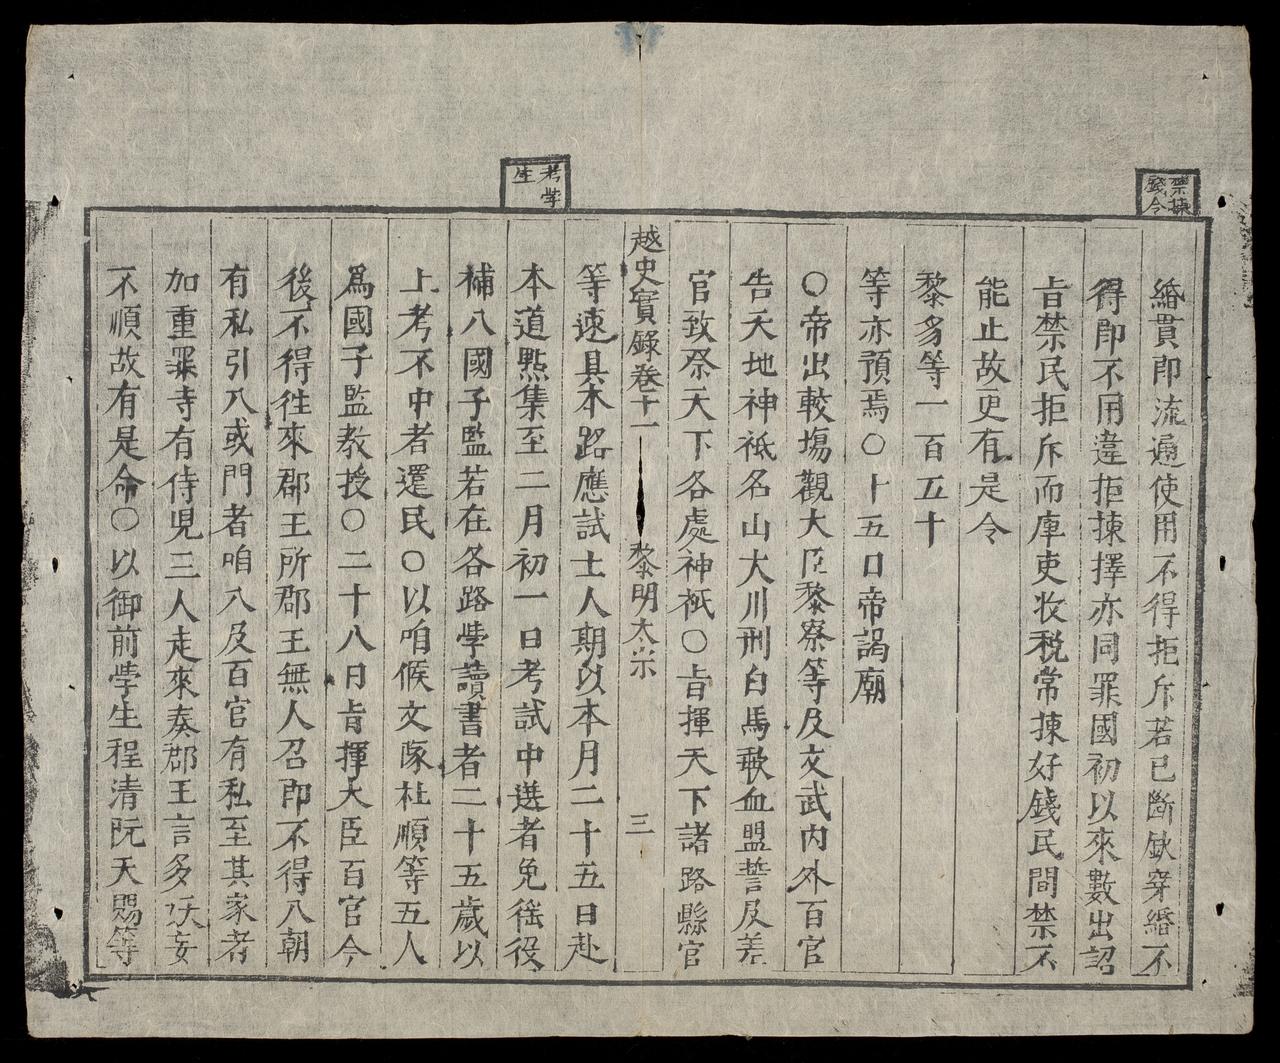 禁揀
錢令
緡貫即流通使用不得拒斥若已斷欽穿緡不
得即不用違拒揀擇亦同罪國初以來數出詔
旨禁民拒斥而庫吏收税常揀好錢民間禁不
能止故更有是令
黎豸等一百五十
等亦預焉〇十五口帝謁廟
〇帝出較塲觀大臣黎寮等及文武内外百官
告天地神祇名山大川刑白馬歃血盟誓及差
官致祭天下各處神祇〇旨揮天下諸路縣官
越史實錄卷十一 黎明太宗 三
考學
生
等速具本路應試士人期以本月二十五日赴
本道㸃集至二月初一日考試中選者免徭役
補入國子監若在各路學讀書者二十五歲以
上考不中者還民〇以咱候文隊杜順等五人
爲國子監教授〇二十八日旨揮大臣百官今
後不得徃來郡王所郡王無人召即不得入朝
有私引入或門者咱入及百官有私至其家者
加重罪寺有侍児三人走來奏郡王言多妖妄
不順故有是命〇以御前學生程清阮天賜等